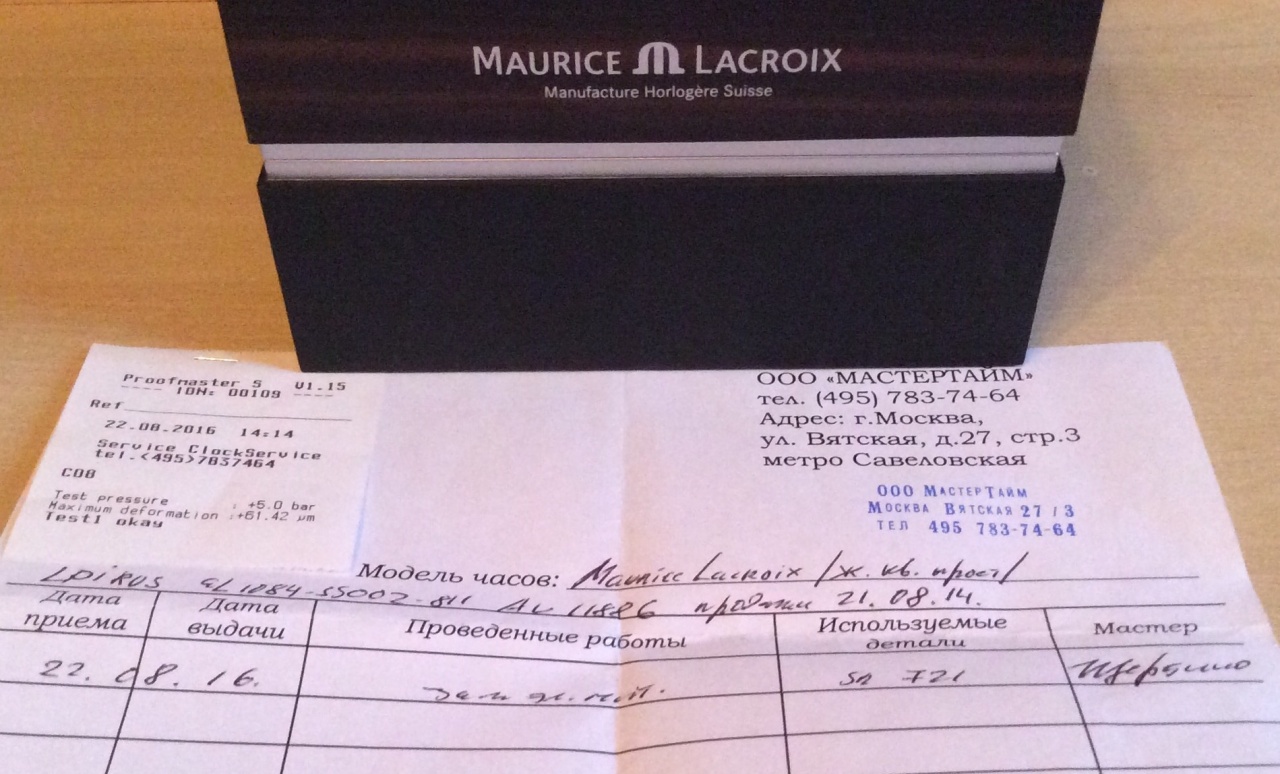 MAURICE LACROIX
Manufacture Horlogère Suisse
Proofmaster S V1.15
IDN: 00109
Ref
22.08.2016 14:14
Service ClockService
tel.<495>7837464
C08
Test pressure : +5.0 bar
Maximum deformation :+61.42 µm
Test1 okay
ООО «МАСТЕРТАЙМ»
тел. (495) 783-74-64
Адрес: г.Москва,
ул. Вятская, д.27, стр.3
метро Савеловская
ООО МАСТЕРТАЙМ
МОСКВА ВЯТСКАЯ 27 / 3
ТЕЛ 495 783-74-64
Модель часов: Maurice Lacroix /ж. кв. прост/
EL1084-SS002-811 продажи 21.08.14.
Дата приема
Дата выдачи
Проведенные работы
Используемые детали
Мастер
22.08.16.
Зам эл. пит.
721